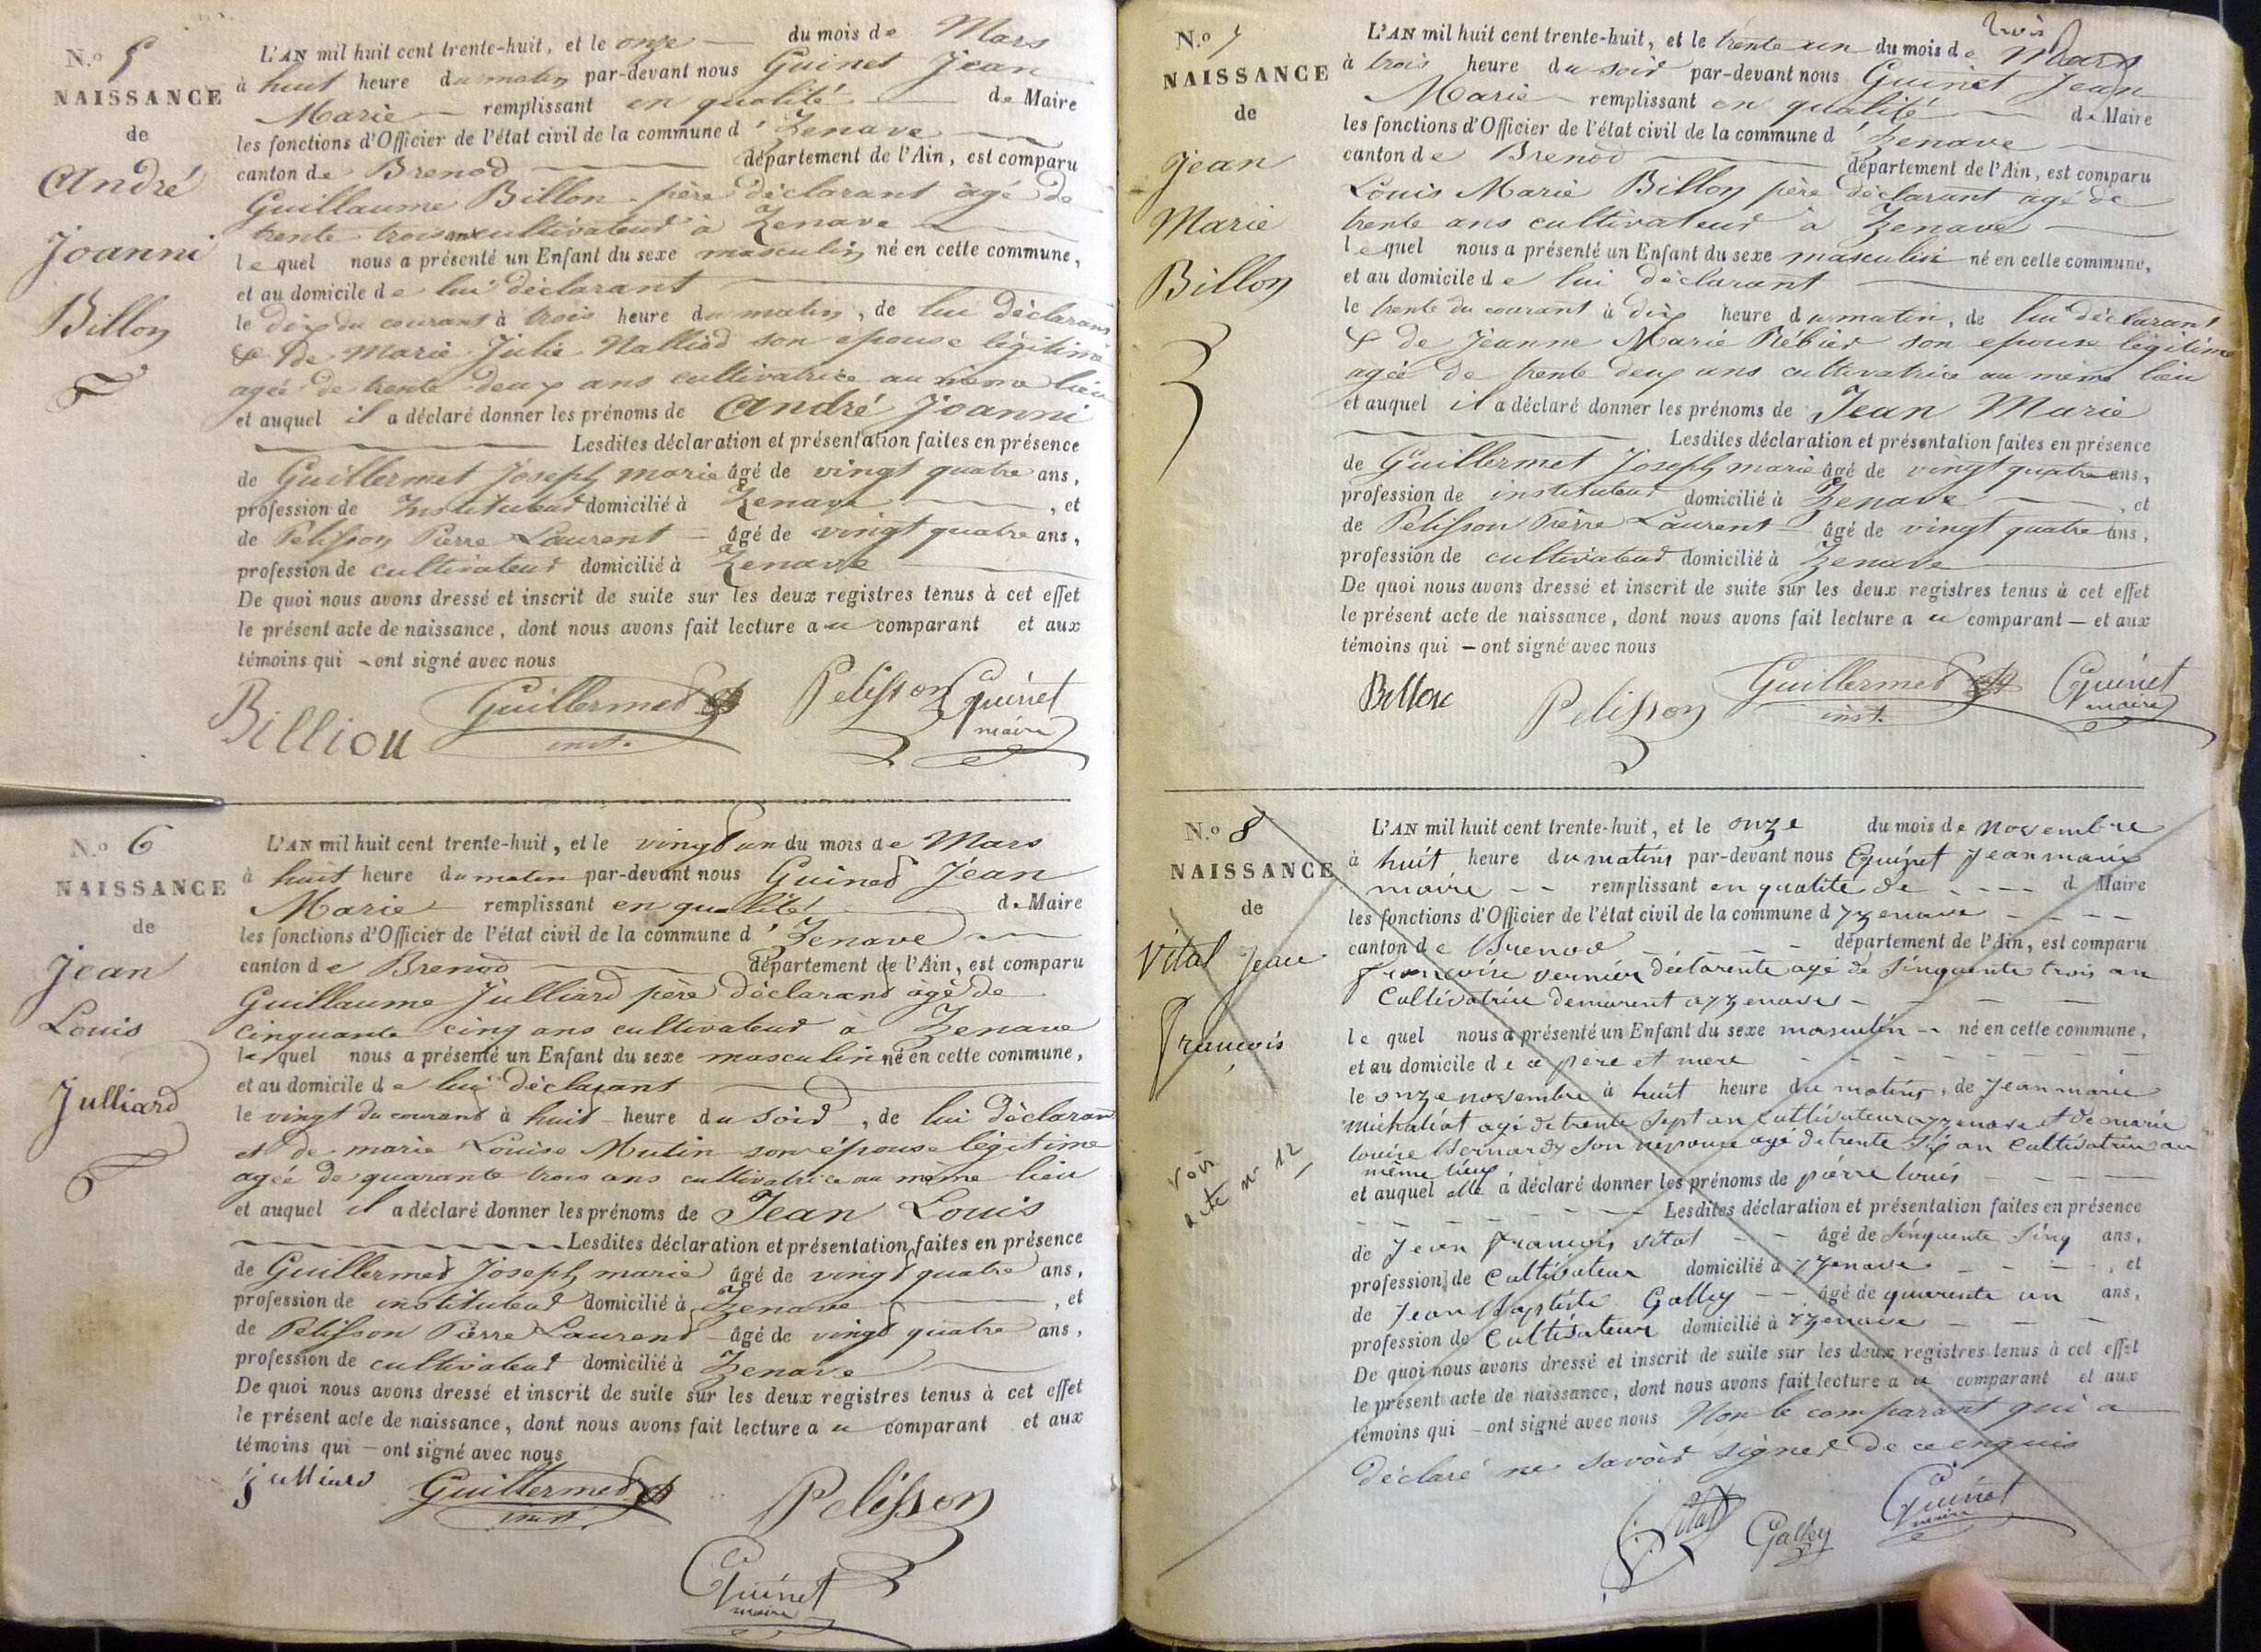 N.o 5
NAISSANCE
de
André
Joanni
Billon
L'AN mil huit cent trente-huit, et le onze du mois de Mars
à huit heure du matin par-devant nous Guinet Jean
Marie remplissant en qualité de Maire
les fonctions d'Officier de l'état civil de la commune d'Izenave
canton de Brenod département de l'Ain, est comparu
Guillaume Billon père déclarant âgé de
trente trois ans cultivateur à Izenave
lequel nous a présenté un Enfant du sexe masculin né en cette commune,
et au domicile de lui déclarant
le dix du courant à trois heure du matin, de lui déclarant
& de Marie Julie Nalliod son épouse légitime
agée de trente deux ans cultivatrice au même lieu
et auquel il a déclaré donner les prénoms de André Joanni
Lesdites déclaration et présentation faites en présence
de Guillermet Joseph marie âgé de vingt quatre ans,
profession de Instituteur domicilié à Izenave, et
de Pelisson Pierre Laurent âgé de vingt quatre ans,
profession de cultivateur domicilié à Izenave
De quoi nous avons dressé et inscrit de suite sur les deux registres tenus à cet effet
le présent acte de naissance, dont nous avons fait lecture au comparant et aux
témoins qui ont signé avec nous
Billiou Guillermet Pelisson Guinet
inst. maire
N.o 6
NAISSANCE
de
Jean
Louis
Julliard
L'AN mil huit cent trente-huit, et le vingt un du mois de Mars
à huit heure du matin par-devant nous Guinet Jean
Marie remplissant en qualité de Maire
les fonctions d'Officier de l'état civil de la commune d'Izenave
canton de Brenod département de l'Ain, est comparu
Guillaume Julliard père déclarant âgé de
cinquante cinq ans cultivateur à Izenave
lequel nous a présenté un Enfant du sexe masculin né en cette commune,
et au domicile de lui déclarant
le vingt du courant à huit heure du soir, de lui déclarant
et de marie Louise Mutin son épouse légitime
agée de quarante trois ans cultivatrice au même lieu
et auquel il a déclaré donner les prénoms de Jean Louis
Lesdites déclaration et présentation faites en présence
de Guillermet Joseph marie âgé de vingt quatre ans,
profession de instituteur domicilié à Izenave, et
de Pelisson Pierre Laurent âgé de vingt quatre ans,
profession de cultivateur domicilié à Izenave
De quoi nous avons dressé et inscrit de suite sur les deux registres tenus à cet effet
le présent acte de naissance, dont nous avons fait lecture au comparant et aux
témoins qui ont signé avec nous
julliard Guillermet Pelisson
inst.
Guinet
maire
N.o 7
NAISSANCE
de
Jean
Marie
Billon
trois
L'AN mil huit cent trente-huit, et le trente un du mois de Mars
à trois heure du soir par-devant nous Guinet Jean
Marie remplissant en qualité de Maire
les fonctions d'Officier de l'état civil de la commune d'Izenave
canton de Brenod département de l'Ain, est comparu
Louis Marie Billon père déclarant agé de
trente ans cultivateur à Izenave
lequel nous a présenté un Enfant du sexe masculin né en cette commune,
et au domicile de lui déclarant
le trente du courant à dix heure du matin, de lui déclarant
& de Jeanne Marie Rébier son epouse légitime
agée de trente deux ans cultivatrice au même lieu
et auquel il a déclaré donner les prénoms de Jean Marie
Lesdites déclaration et présentation faites en présence
de Guillermet Joseph marie âgé de vingt quatre ans,
profession de instituteur domicilié à Izenave, et
de Pelisson Pierre Laurent âgé de vingt quatre ans,
profession de cultivateur domicilié à Izenave
De quoi nous avons dressé et inscrit de suite sur les deux registres tenus à cet effet
le présent acte de naissance, dont nous avons fait lecture au comparant et aux
témoins qui ont signé avec nous
Billon Pelisson Guillermet Guinet
inst. maire
N.o 8
NAISSANCE
de
Vital Jean
François
Voir
acte n° 12
L'AN mil huit cent trente-huit, et le onze du mois de novembre
à huit heure du matins par-devant nous Guinet jean marie
maire remplissant en qualité de d Maire
les fonctions d'Officier de l'état civil de la commune d yzenave
canton de Brenod département de l'Ain, est comparu
francoise vernier déclarente agé de sinquente trois an
cultivatrice demeurent a yzenave
lequel nous a présenté un Enfant du sexe masculin né en cette commune,
et au domicile de ce pere et mere
le onze novembre à huit heure du matins, de jean marie
michaliat agé de trente sept an cultivateur a yzenave et de marie
louise Bernardy son nepouse age de trente six an cultivatrice au
même lieux
et auquel elle a déclaré donner les prénoms de piérre louis
Lesdites déclaration et présentation faites en présence
de jean francois vital âgé de sinquente sinq ans,
profession de Cultivateur domicilié à yzenave, et
de jean Baptiste Galley âgé de quarente un ans,
profession de Cultivateur domicilié à yzenave
De quoi nous avons dressé et inscrit de suite sur les deux registres tenus à cet effet
le présent acte de naissance, dont nous avons fait lecture au comparant et aux
témoins qui ont signé avec nous Non le comparant qui a
déclaré ne savoir signer de ce enquis
Vital Galley Guinet
maire